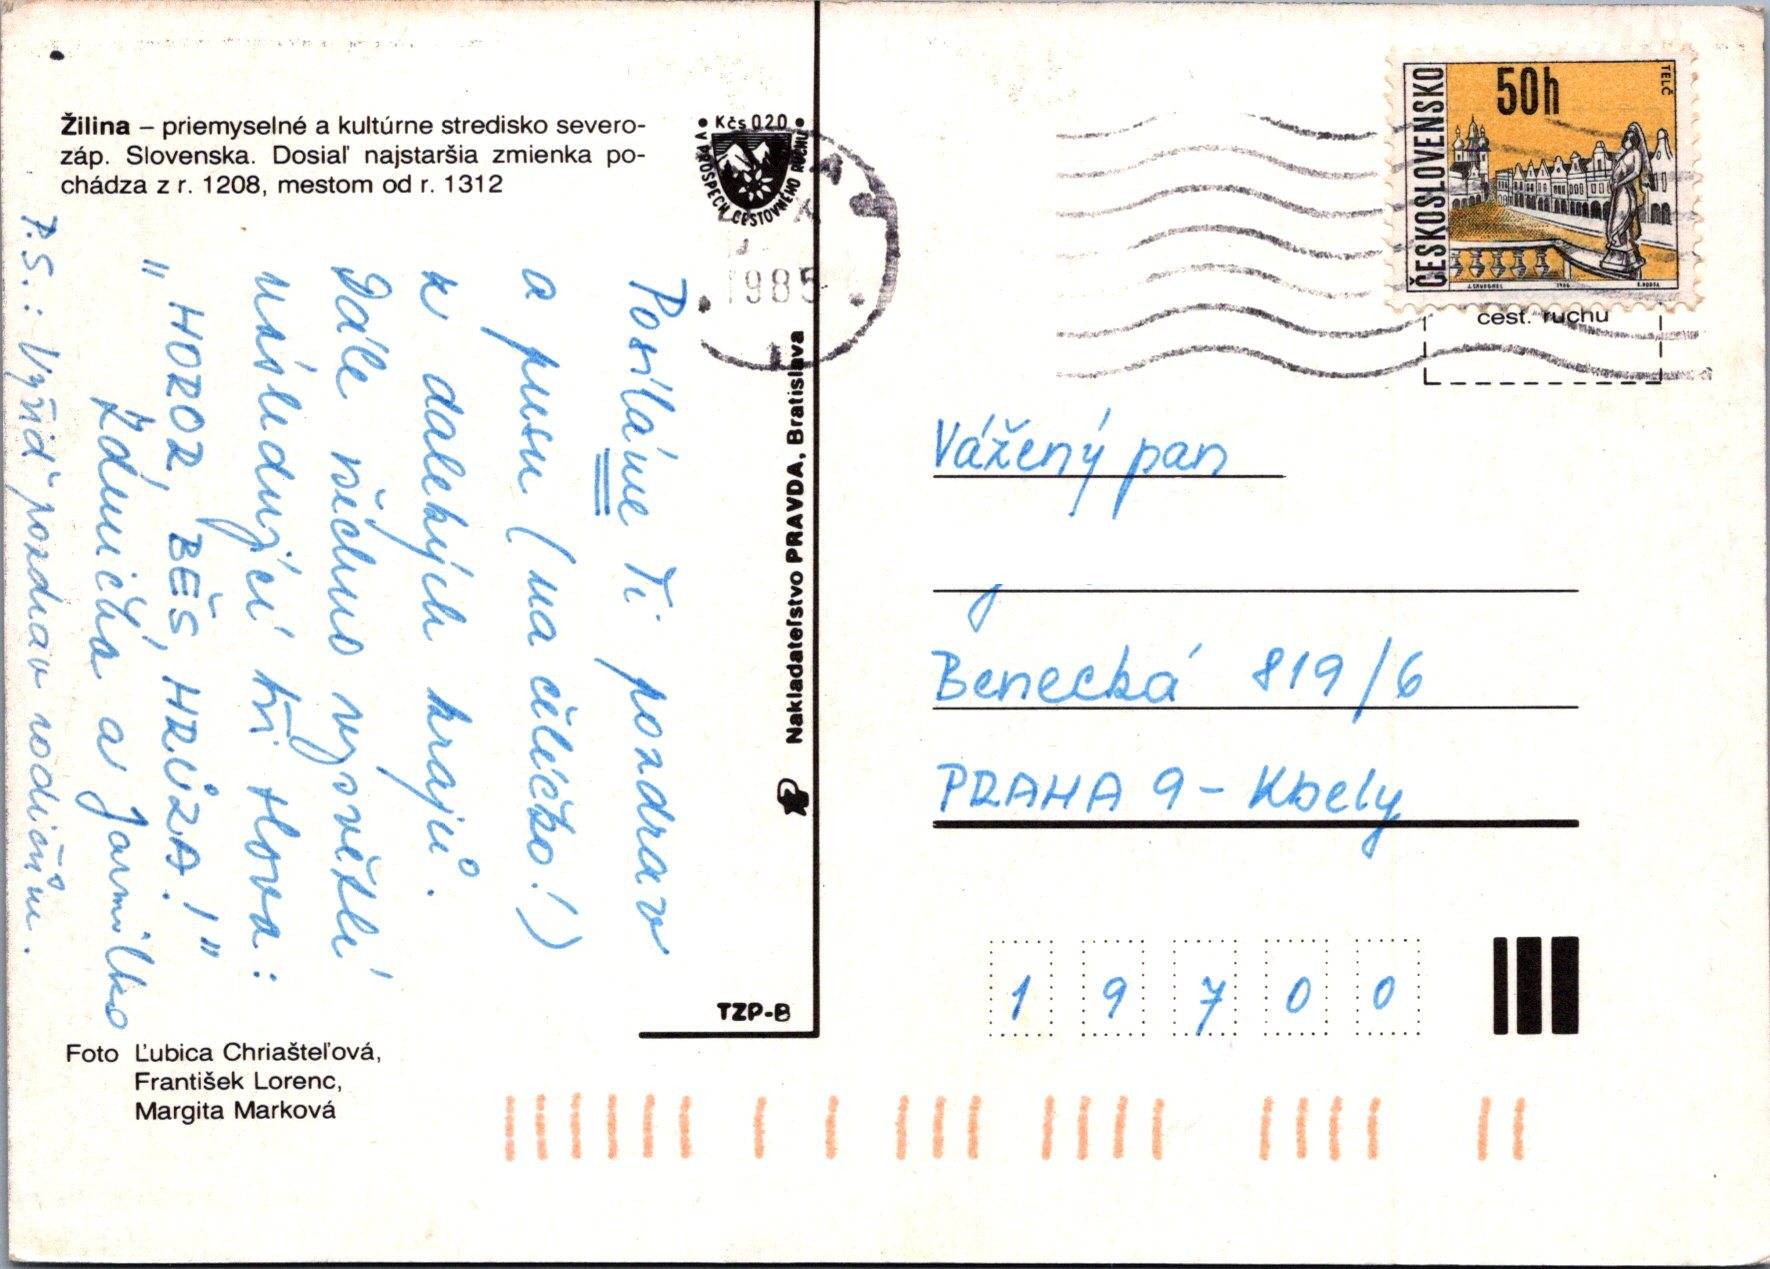 Žilina – priemyselné a kultúrne stredisko severo-
záp. Slovenska. Dosiaľ najstaršia zmienka po-
chádza z r. 1208, mestom od r. 1312
• Kčs 0.20 •
V PROSPECH CESTOVNÉHO RUCHU
1985
Posíláme Ti pozdrav
a pusu (na čelíčko!)
z dalekých krajů.
Dále všechno vysvětlí
následující tři slova:
"HOROR, BĚS, HRŮZA!"
Zdenička a Jarmilka
P.S.: Vyřiď pozdrav rodičům.
Nakladateľstvo PRAVDA, Bratislava
TZP-B
Foto Ľubica Chriašteľová,
František Lorenc,
Margita Marková
ČESKOSLOVENSKO
50h
TELČ
cest. ruchu
Vážený pan
Benecká 819/6
PRAHA 9 – Kbely
1 9 7 0 0